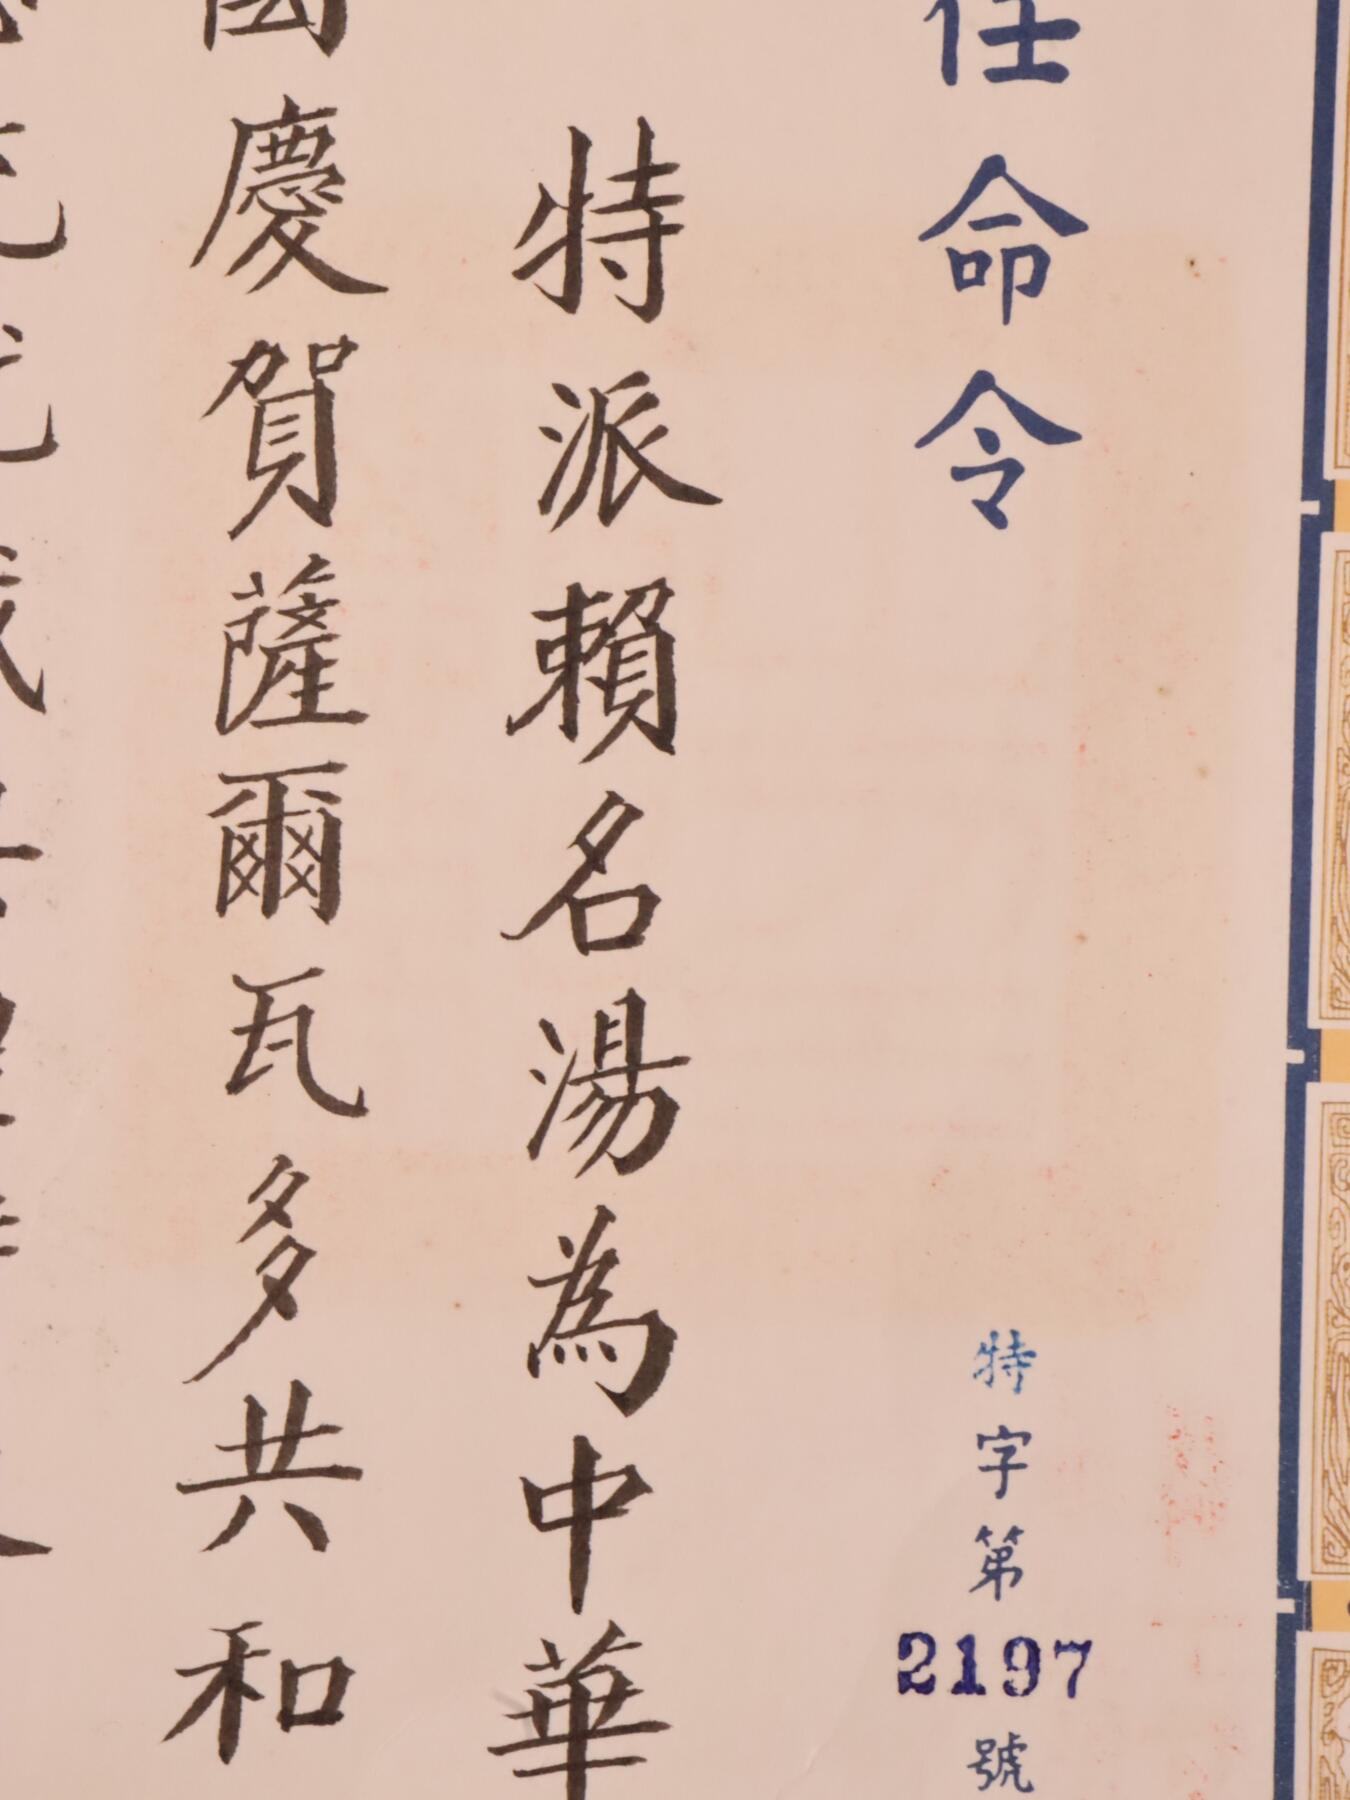 任命令
特字第2197號
特派賴名湯為中華
國慶賀薩爾瓦多共和